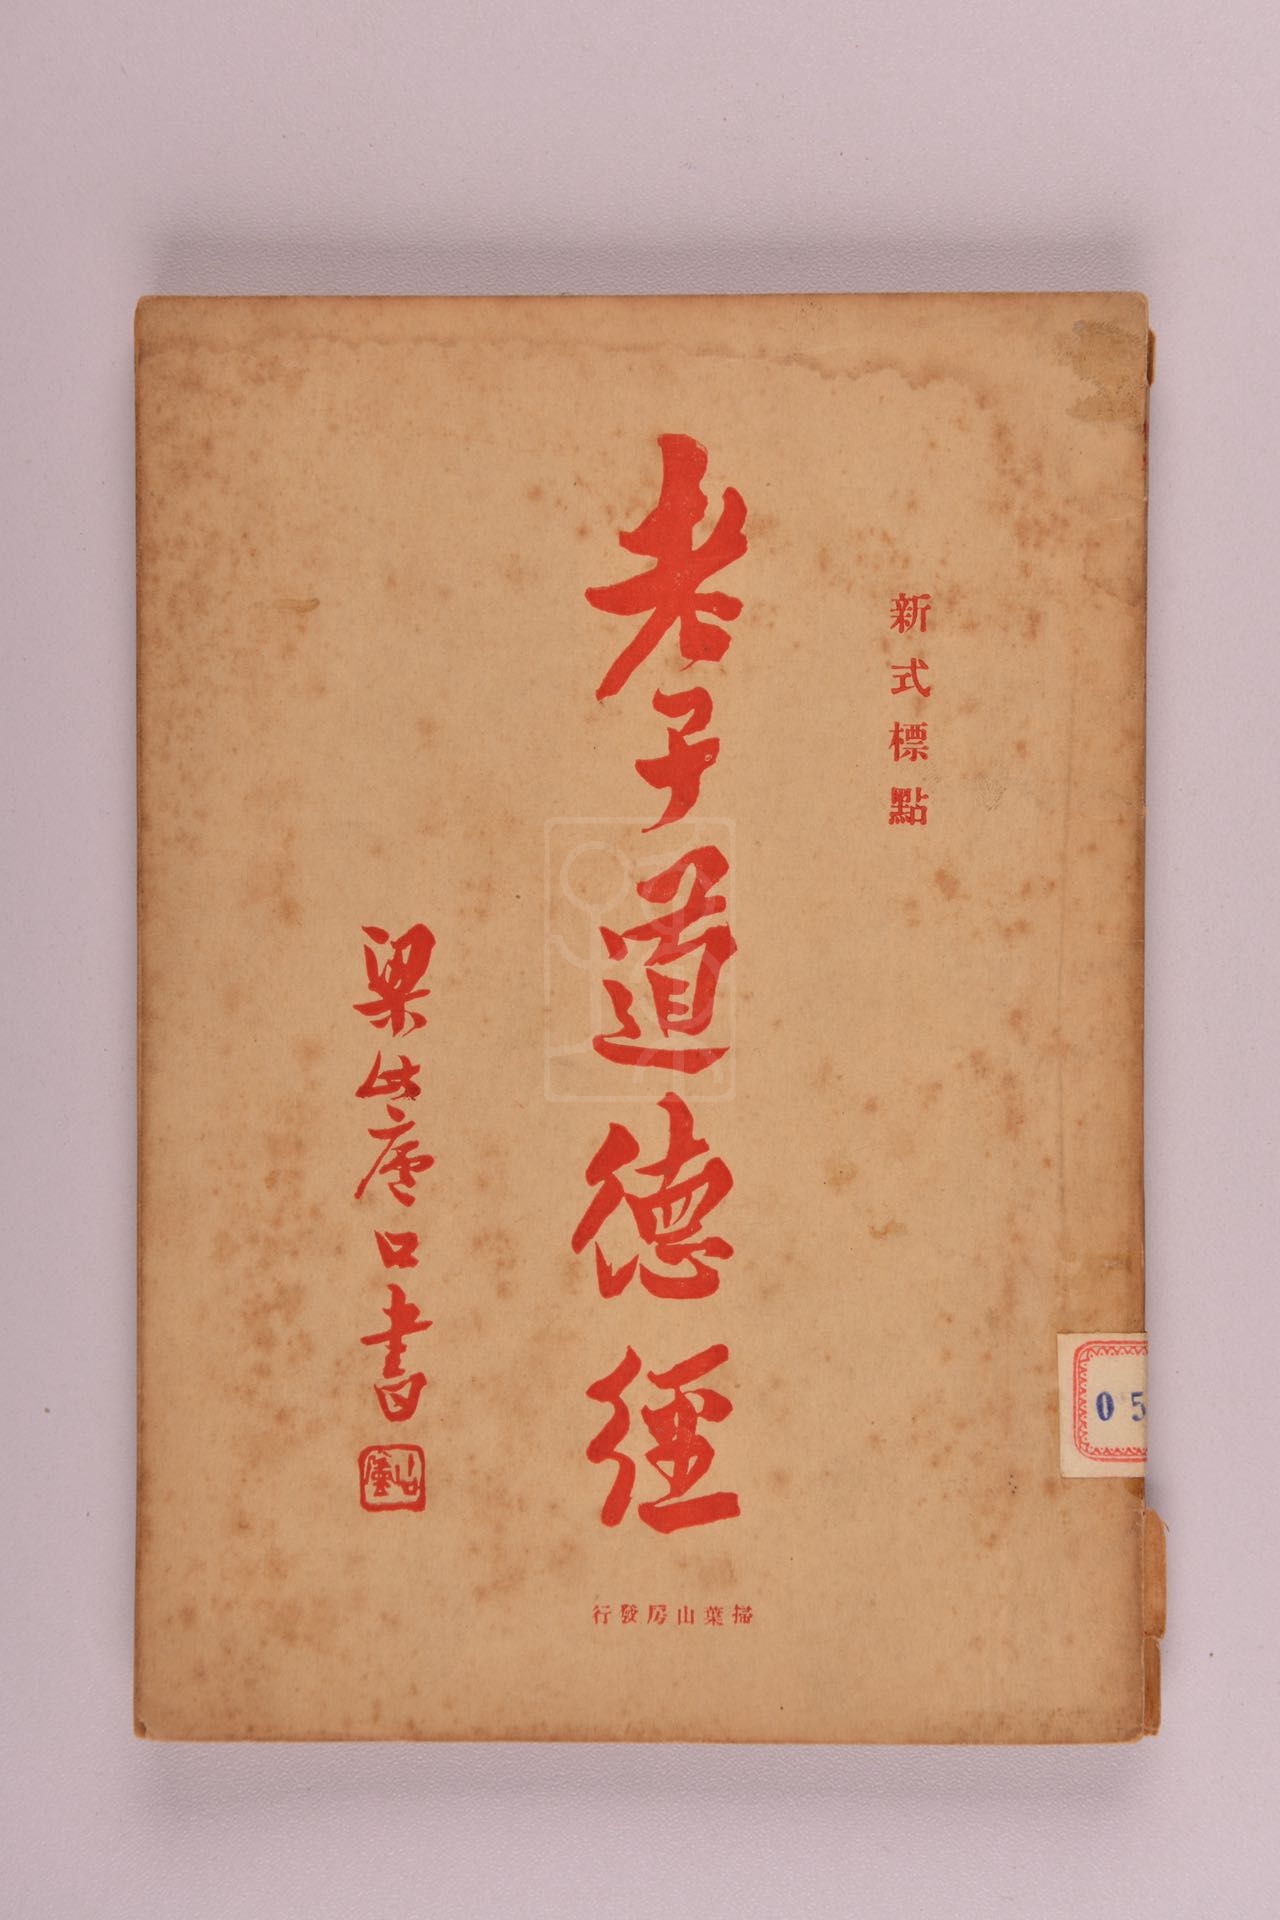 新式標點
老子道德經
梁此廬口書
掃葉山房發行
05